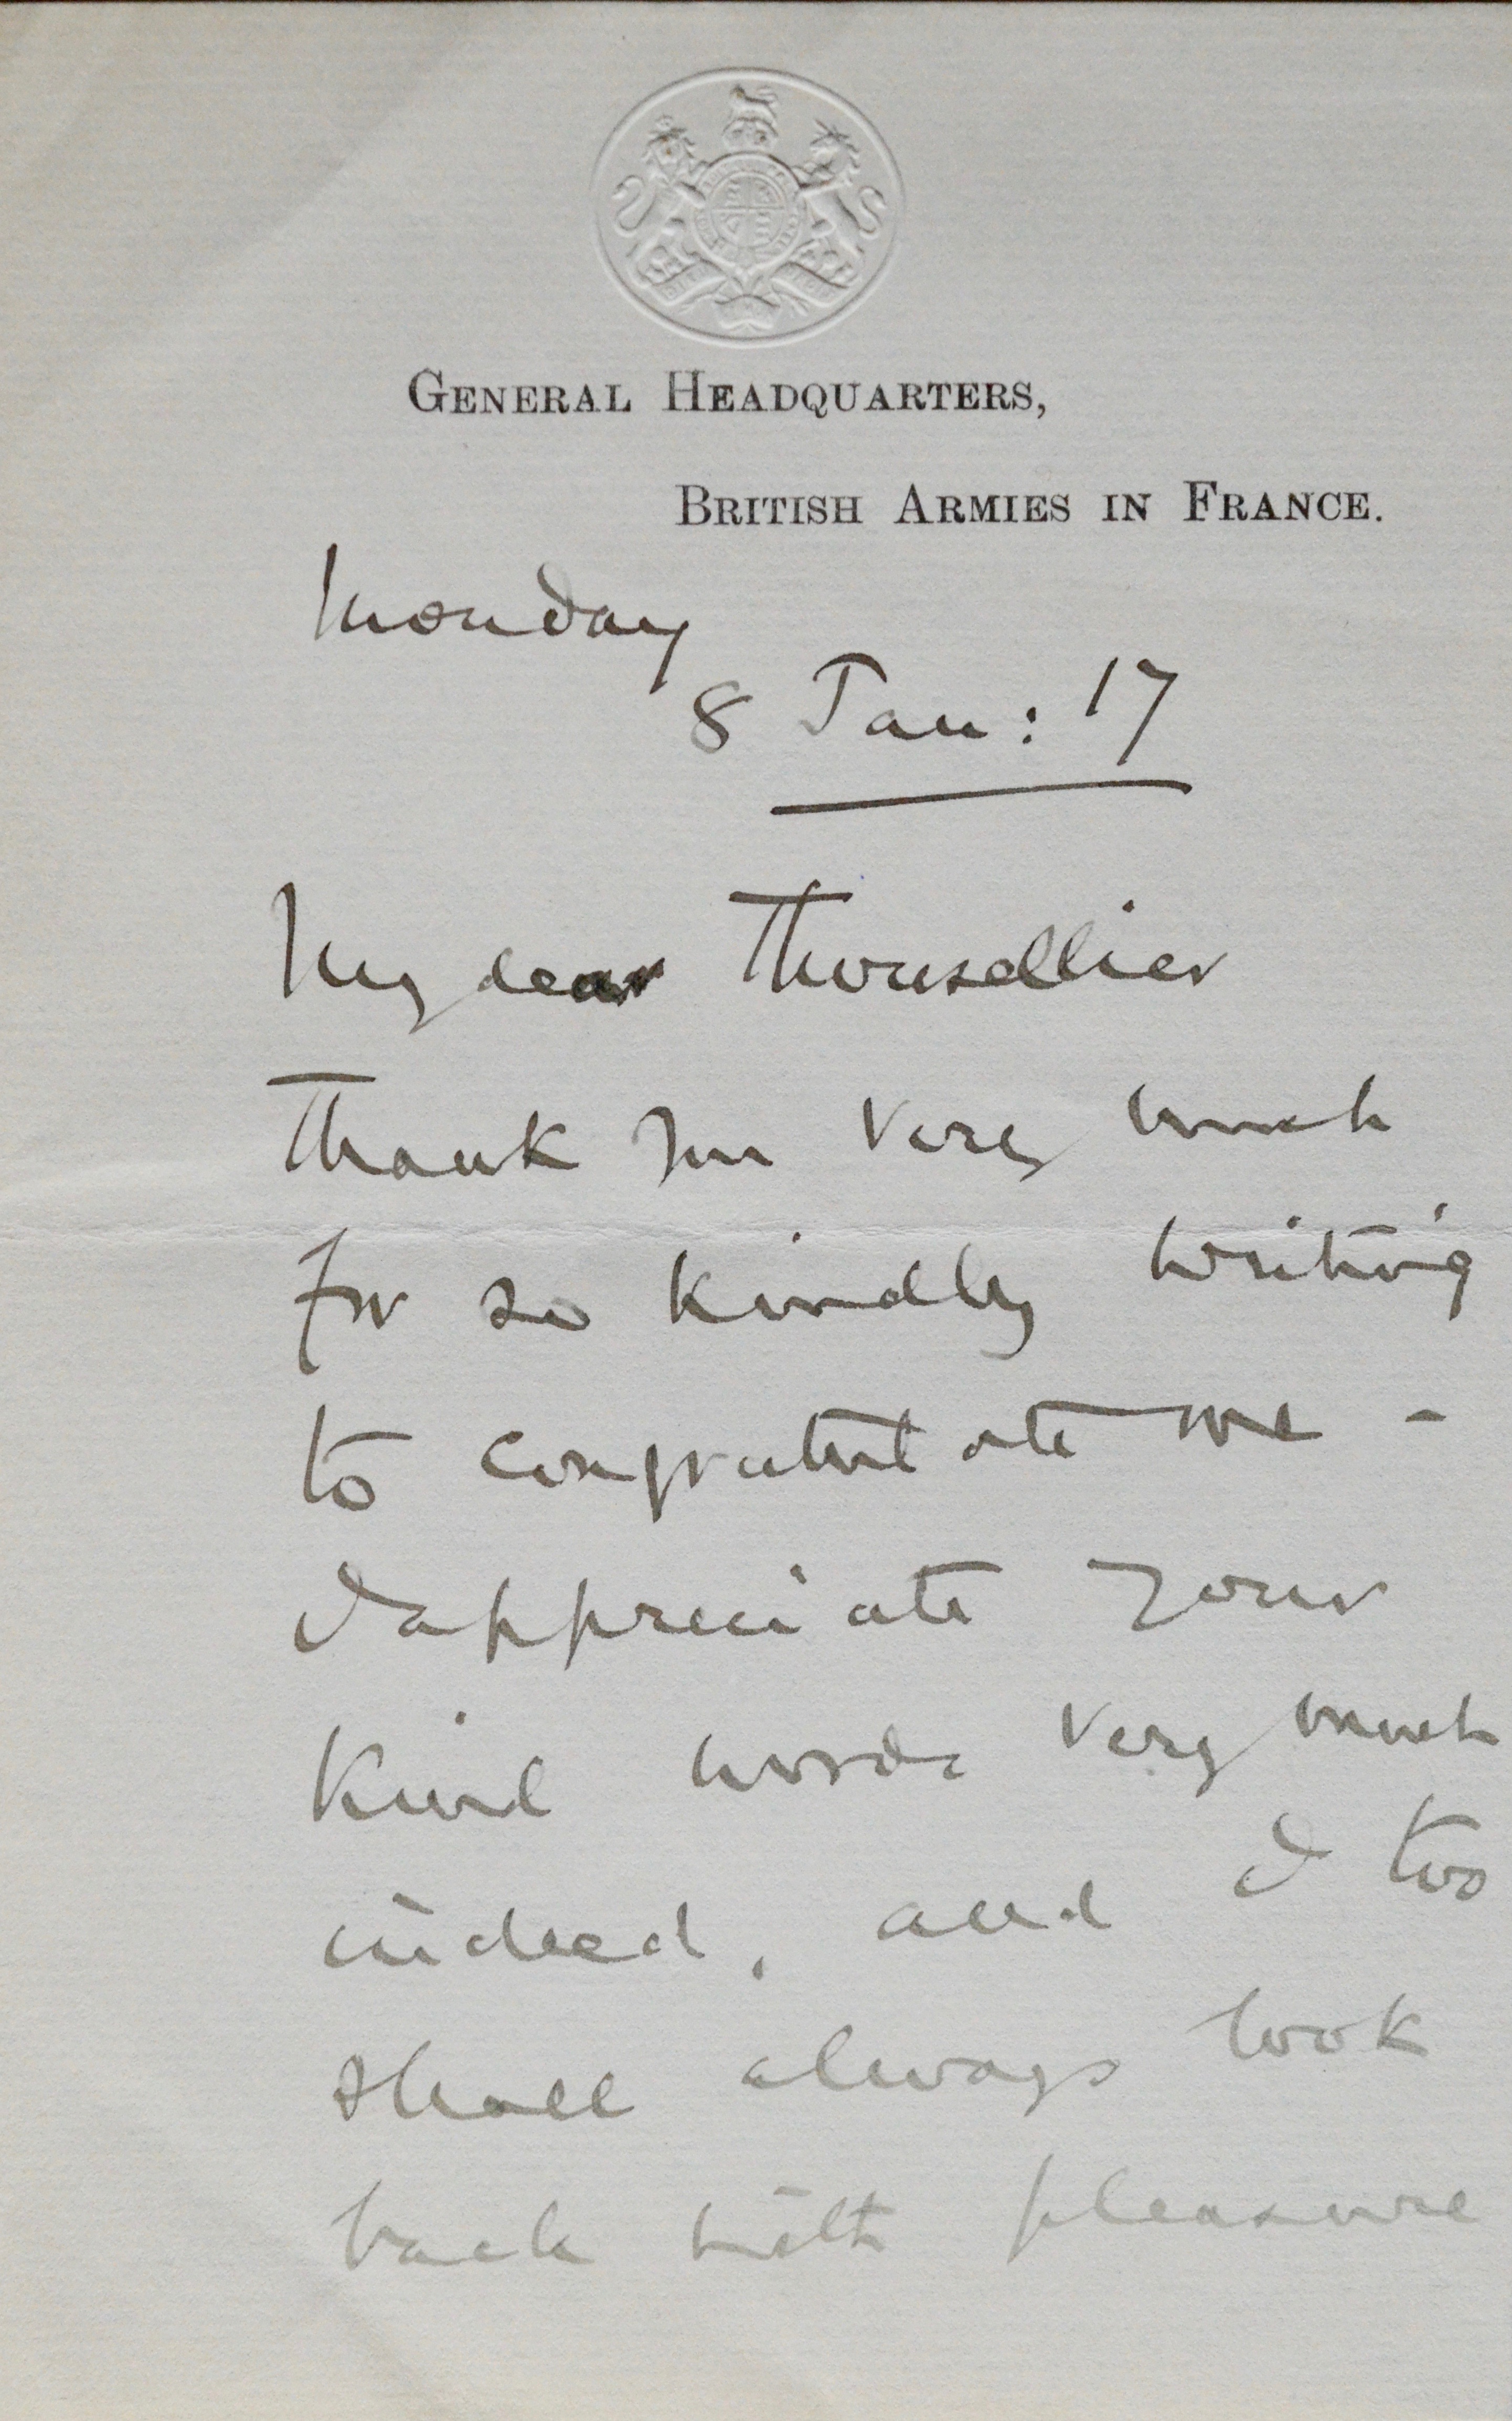 GENERAL HEADQUARTERS,
BRITISH ARMIES IN FRANCE.
Monday
8 Jan: 17
My dear Thousellier
Thank you very much
for so kindly writing
to congratulate me -
I appreciate your
kind words very much
indeed, and I too
shall always look
back with pleasure